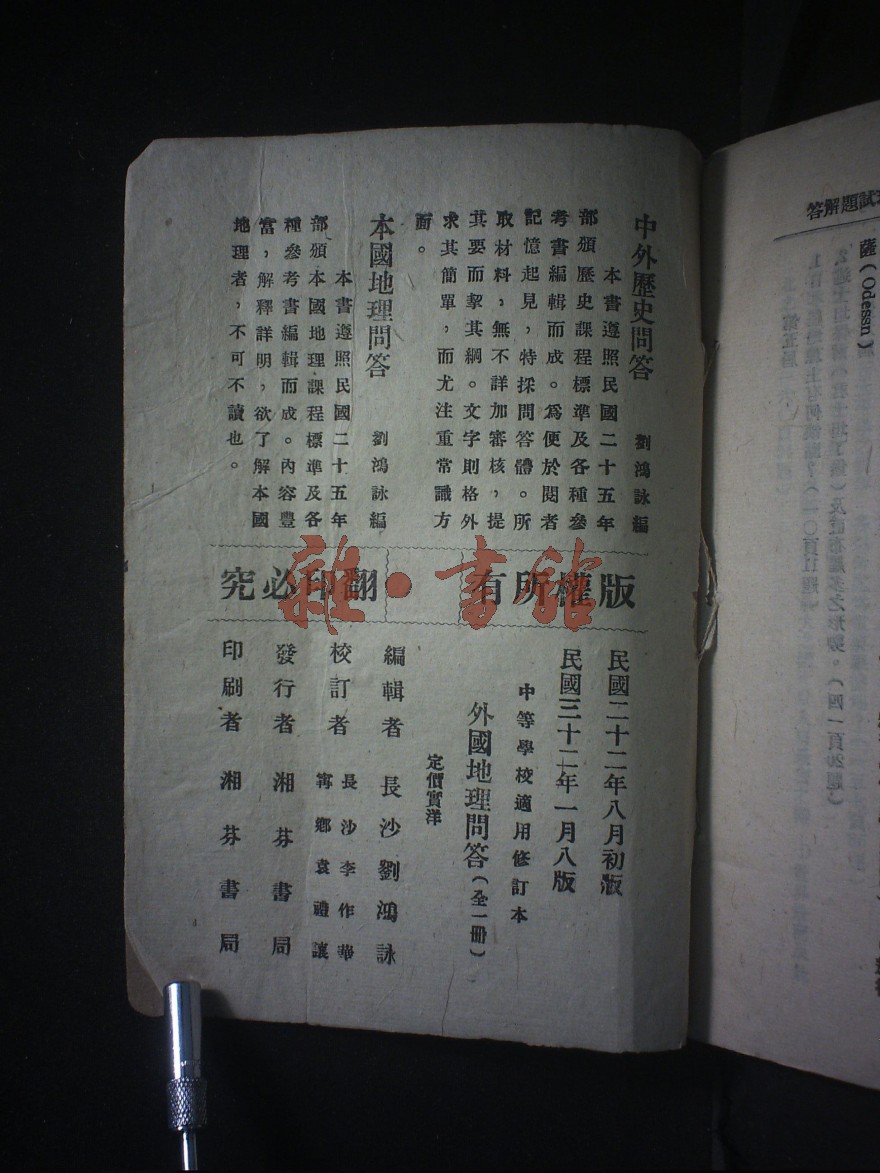 中外歷史問答　劉鴻詠編
本書遵照民國二十五年
部頒歷史課程標準及各種參
考書編輯而成。爲便於閱者
記憶起見，特採問答體。所
取材料，無不詳加審核，提
其要而挈其綱。文字則格外
求其簡單，而尤注重常識方
面。
本國地理問答　劉鴻詠編
本書遵照民國二十五年
部頒本國地理課程標準及各
種參考書編輯而成。內容豐
富，解釋詳明，欲了解本國
地理者，不可不讀也。
版權所有
翻印必究
雜·書館
民國二十二年八月初版
民國三十二年一月八版
中等學校適用修訂本
外國地理問答（全一冊）
定價實洋
編輯者　長沙劉鴻詠
校訂者　長沙李作華
寗鄉袁禮讓
發行者　湘芬書局
印刷者　湘芬書局
試題解答
薩（Odessn）